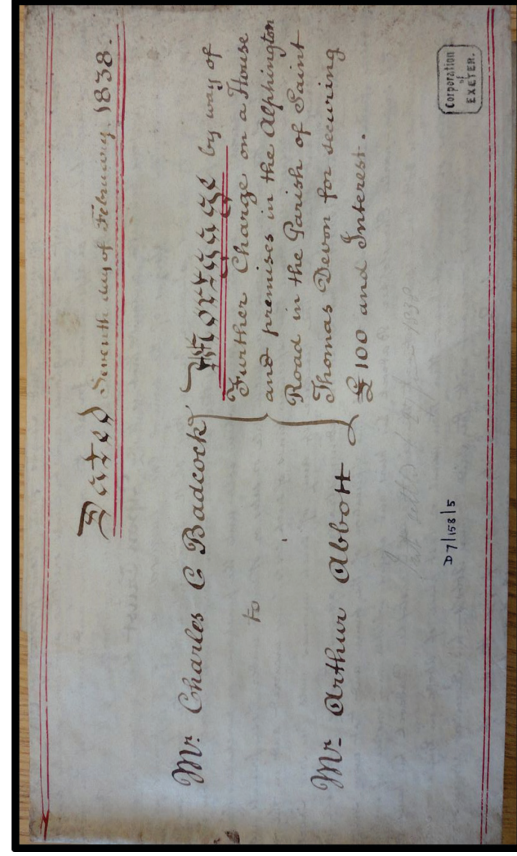 Dated Seventh day of February 1838.
Mr. Charles C Badcock
to
Mr Arthur Abbott
Mortgage by way of
Further Charge on a House
and premises in the Alphington
Road in the Parish of Saint
Thomas Devon for securing
£100 and Interest.
D7/158/5
Corporation
of
EXETER.